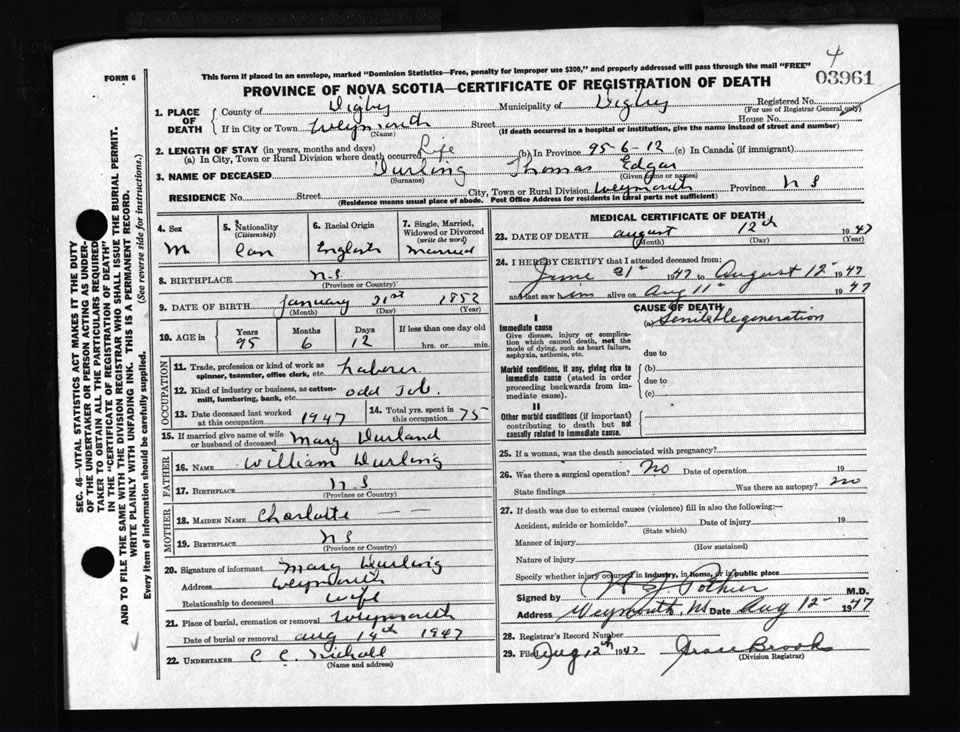 4
FORM 6
This form if placed in an envelope, marked "Dominion Statistics—Free, penalty for improper use $300," and properly addressed will pass through the mail "FREE"
03961
PROVINCE OF NOVA SCOTIA—CERTIFICATE OF REGISTRATION OF DEATH
1. PLACE OF DEATH { County of Digby Municipality of Digby Registered No.
(For use of Registrar General only)
If in City or Town Weymouth Street House No.
(Name) (If death occurred in a hospital or institution, give the name instead of street and number)
2. LENGTH OF STAY (in years, months and days)
(a) In City, Town or Rural Division where death occurred Life (b) In Province 95-6-12 (c) In Canada (if immigrant)
3. NAME OF DECEASED Durling Thomas Edgar
(Surname) (Given name or names)
RESIDENCE No. Street City, Town or Rural Division Weymouth Province N S
(Residence means usual place of abode. Post Office Address for residents in rural parts not sufficient)
4. Sex
M
5. Nationality
(Citizenship)
Can
6. Racial Origin
English
7. Single, Married, Widowed or Divorced
(write the word)
Married
8. BIRTHPLACE N.S
(Province or Country)
9. DATE OF BIRTH January 31st 1852
(Month) (Day) (Year)
10. AGE in Years Months Days If less than one day old
95 6 12 hrs. or min.
OCCUPATION
11. Trade, profession or kind of work as spinner, teamster, office clerk, etc. Laborer.
12. Kind of industry or business, as cotton-mill, lumbering, bank, etc. odd Job.
13. Date deceased last worked at this occupation 1947
14. Total yrs. spent in this occupation 75
15. If married give name of wife or husband of deceased Mary Durland
FATHER
16. NAME William Durling
17. BIRTHPLACE N.S
(Province or Country)
MOTHER
18. MAIDEN NAME Charlotte — —
19. BIRTHPLACE N S
(Province or Country)
20. Signature of informant Mary Durling
Address Weymouth
Relationship to deceased Wife
21. Place of burial, cremation or removal Weymouth
Date of burial or removal Aug 14th 1947
22. UNDERTAKER C C. Nicholl
(Name and address)
MEDICAL CERTIFICATE OF DEATH
23. DATE OF DEATH August 12th 1947
(Month) (Day) (Year)
24. I HEREBY CERTIFY that I attended deceased from:
June 21st 1947 to August 12 1947
and last saw him alive on Aug 11th 1947
CAUSE OF DEATH
I
Immediate cause (a) Senile degeneration
Give disease, injury or complication which caused death, not the mode of dying, such as heart failure, asphyxia, asthenia, etc.
due to
Morbid conditions, if any, giving rise to immediate cause (stated in order proceeding backwards from immediate cause).
(b)
due to
(c)
II
Other morbid conditions (if important) contributing to death but not causally related to immediate cause.
25. If a woman, was the death associated with pregnancy?
26. Was there a surgical operation? No Date of operation 19
State findings Was there an autopsy? no
27. If death was due to external causes (violence) fill in also the following:—
Accident, suicide or homicide? Date of injury 19
(State which)
Manner of injury
(How sustained)
Nature of injury
Specify whether injury occurred in industry, in home, or in public place
Signed by Pothier M.D.
Address Weymouth, Date Aug 12 1947
28. Registrar's Record Number
29. Filed Aug 12th 1947 Grace Brooks
(Division Registrar)
SEC. 46—VITAL STATISTICS ACT MAKES IT THE DUTY
OF THE UNDERTAKER OR PERSON ACTING AS UNDERTAKER TO OBTAIN ALL THE PARTICULARS REQUIRED
IN THE "CERTIFICATE OF REGISTRATION OF DEATH"
AND TO FILE THE SAME WITH THE DIVISION REGISTRAR WHO SHALL ISSUE THE BURIAL PERMIT.
WRITE PLAINLY WITH UNFADING INK. THIS IS A PERMANENT RECORD.
Every item of information should be carefully supplied. (See reverse side for instructions.)